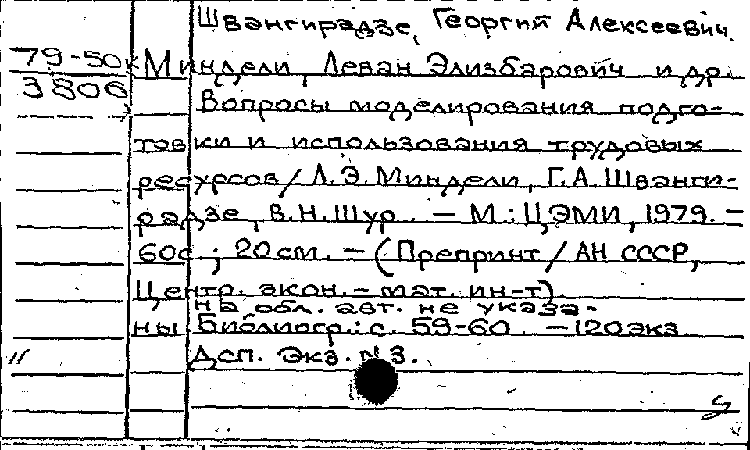 Швангирадзе, Георгий Алексеевич.
79-50к Миндели, Леван Элизбарович и др.
3806 Вопросы моделирования подго-
товки и использования трудовых
ресурсов / Л.Э. Миндели, Г.А. Шванги-
радзе, В.Н. Шур. — М.: ЦЭМИ, 1979. —
60с.; 20 см. — (Препринт / АН СССР,
Центр. экон.-мат. ин-т).
На обл. авт. не указа-
ны Библиогр.: с. 59-60. — 120 экз.
Дсп. Экз. N 3.